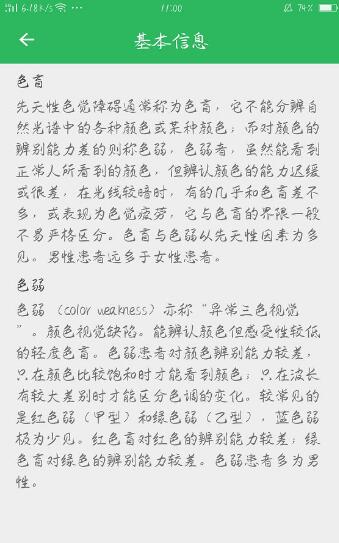 6.18K/s ··· 11:00 74%
基本信息
色盲
先天性色觉障碍通常称为色盲，它不能分辨自
然光谱中的各种颜色或某种颜色；而对颜色的
辨别能力差的则称色弱，色弱者，虽然能看到
正常人所看到的颜色，但辨认颜色的能力迟缓
或很差，在光线较暗时，有的几乎和色盲差不
多，或表现为色觉疲劳，它与色盲的界限一般
不易严格区分。色盲与色弱以先天性因素为多
见。男性患者远多于女性患者。
色弱
色弱（color weakness）亦称“异常三色视觉
”。颜色视觉缺陷。能辨认颜色但感受性较低
的轻度色盲。色弱患者对颜色辨别能力较差，
只在颜色比较饱和时才能看到颜色；只在波长
有较大差别时才能区分色调的变化。较常见的
是红色弱（甲型）和绿色弱（乙型），蓝色弱
极为少见。红色盲对红色的辨别能力较差；绿
色盲对绿色的辨别能力较差。色弱患者多为男
性。